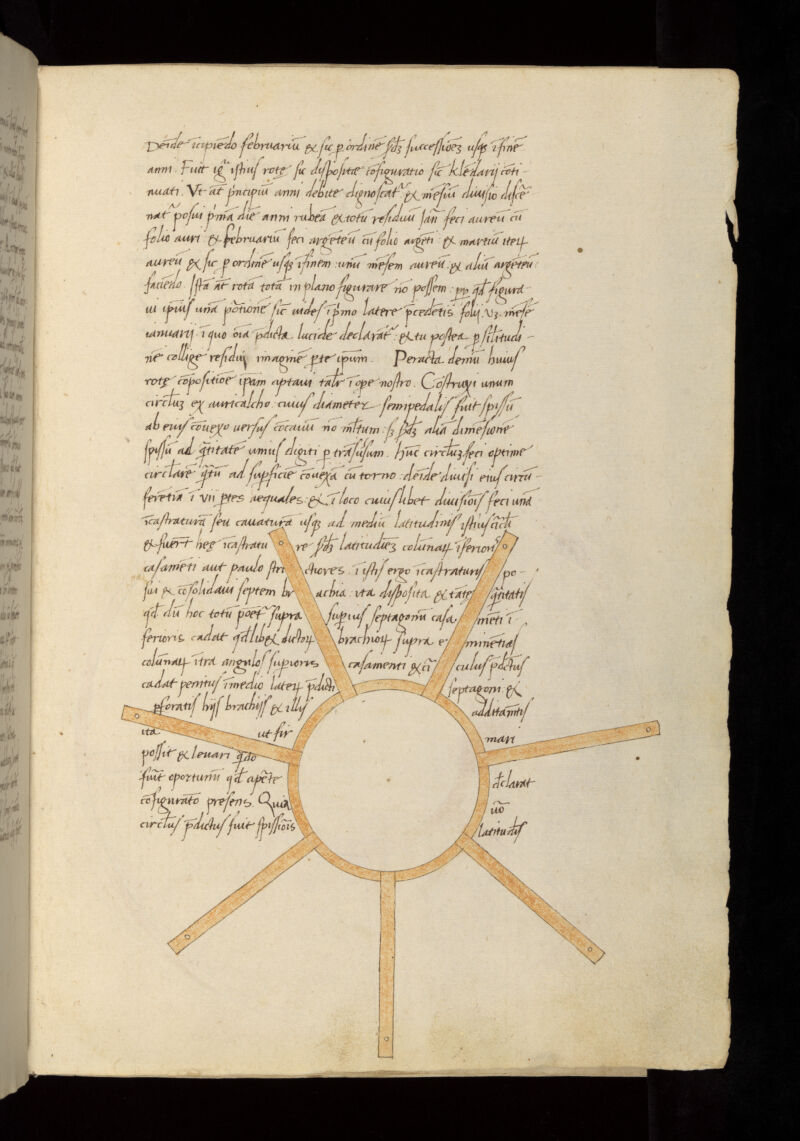 Deīde īcipiēdo februariū & sic p ordinē sḋʒ successiōeʒ usqʒ ī finē
anni. Fuit ig̃ istius rotę sic dispositię cōfiguratio sic klēdarij cōti-
nuati. Vt āt p̃ncipiū anni debite dignoscāt᷑ & mēsiū diuisio discer̄
nat᷑ posui p̃mā diē anni rubeā & totū residuū Jan̄ feci aureū cū
folio auri & februariū feci argēteū cū folio argēti & martiū iteꝝ
aureū & sic p ordinē usqʒ ī finem unū mēsem aureū & aliū argēteū
faciēdo. Jstā āt rotā totā in plano figurare nō possem pp qḋ figura
ui ipsius unā portionē sic uides ī p̃mo latere p̃cedētis folij uʒ mēsē
ianuarij ī quo oīa p̃dicta lucide declarāt᷑ & tu postea p silitudi-
nē collige residui imaginē p te ipsum. Peracta demū huius
rotę cōpositiōe ipsam aptaui talr̄ ī ope nostro. Cōstruxi unum
circl̄uʒ ex auricalcho cuius diameter semipedalis fuit spissū
ab eius conuexo uersus cōcauū nō ml̄tum sʒ sḋʒ aliā dimēsionē
spissū ad q̃titatē unius digiti p trāsūsum. Hūc circl̄uʒ feci optime
circl̄arē q̃tū ad supficiē cōuexā cū torno deīde diuisi eius circū-
ferētiā ī vii p̃tes aequales & ī loco cuiuslibet diuisiōis feci unā
īcastraturā seu cauaturā usqʒ ad mediū latitudinis istius circl̄i
& fuer̄t hęę īcastratu re sḋʒ latitudiēʒ colūnaꝝ īferioris
casamēti aut paulo stri ctiores ī istis ergo īcastraturis po-
sui & cōsolidaui septem br achia ita disposita & tātę q̃titatis
qḋ dū hoc totū poēt᷑ supra supius septagonū casa mēti ī
ferioris cadat qḋlibet dictoꝝ brachioꝝ supra e minētias
colūnaꝝ ītra angulos supioris casamenti & cir̄ culus p̃dctus
cadat penitus ī medio lateꝝ p̃dicti septagoni &
pforatis hijs brachijs & illis additamētis
ita ut fir mari
possit & leuari q̃do
fuit oportunū qḋ apte declarat
cōfiguratō presens. Quia uō
circl̄us p̃dictus fuit spissiōis latitudīs